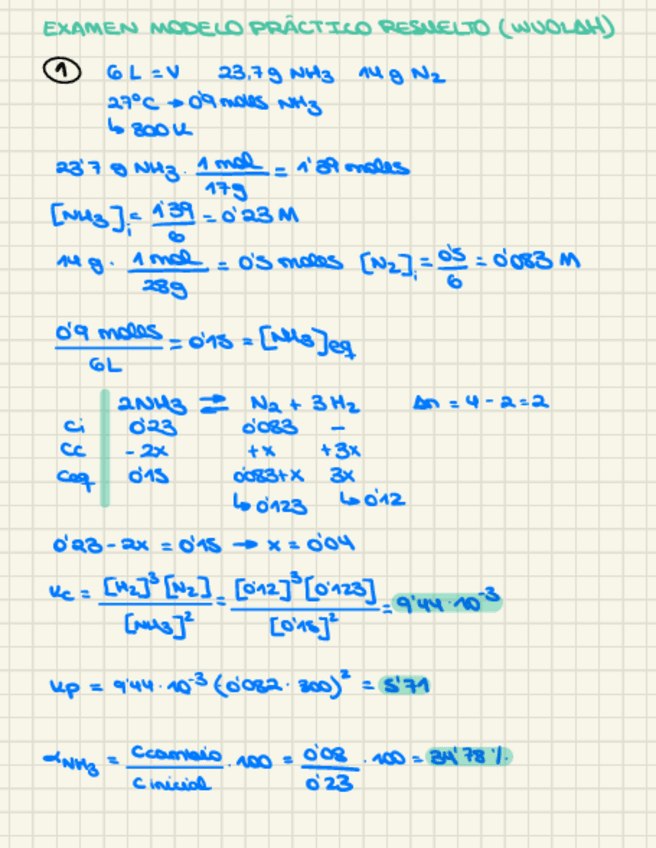 EXAMEN MODELO PRÁCTICO RESUELTO (WUOLAH)
1 6 L = V 23,7 g NH3 14 g N2
27°C → 0'9 moles NH3
↳ 300 K
23'7 g NH3 · 1 mol / 17g = 1'39 moles
[NH3]i = 1'39 / 6 = 0'23 M
14 g · 1 mol / 28g = 0'5 moles [N2]i = 0'5 / 6 = 0'083 M
0'9 moles / 6L = 0'15 = [NH3]eq
2NH3 ⇌ N2 + 3H2 Δn = 4 - 2 = 2
Ci 0'23 0'083 -
Cc - 2x +x +3x
Ceq 0'15 0'083+x 3x
↳ 0'123 ↳ 0'12
0'23 - 2x = 0'15 → x = 0'04
Kc = [H2]³ [N2] / [NH3]² = [0'12]³ [0'123] / [0'15]² = 9'44 · 10⁻³
Kp = 9'44 · 10⁻³ (0'082 · 300)² = 5'71
αNH3 = Ccambio / C inicial · 100 = 0'08 / 0'23 · 100 = 34'78 %